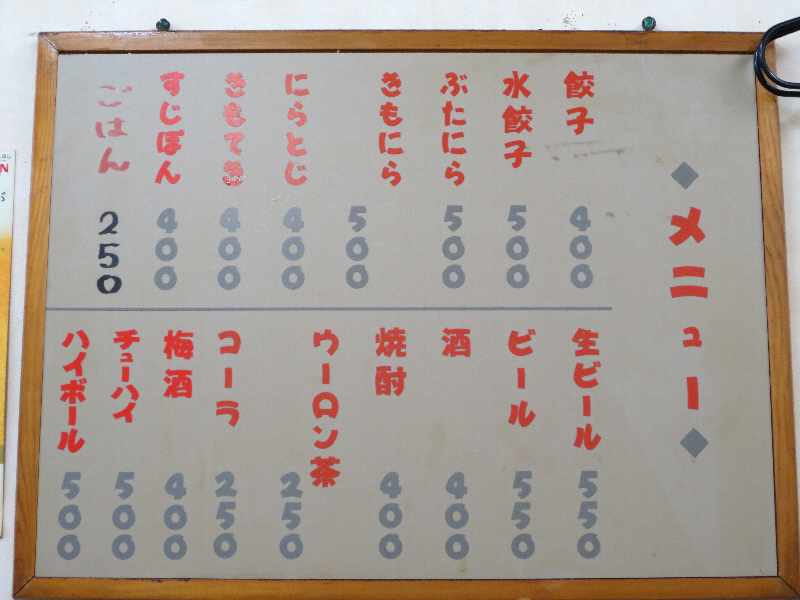 ◆メニュー◆
餃子 400
水餃子 500
ぶたにら 500
きもにら 500
にらとじ 400
きもてき 400
すじぽん 400
ごはん 250
生ビール 550
ビール 550
酒 400
焼酎 400
ウーロン茶 250
コーラ 250
梅酒 400
チューハイ 500
ハイボール 500